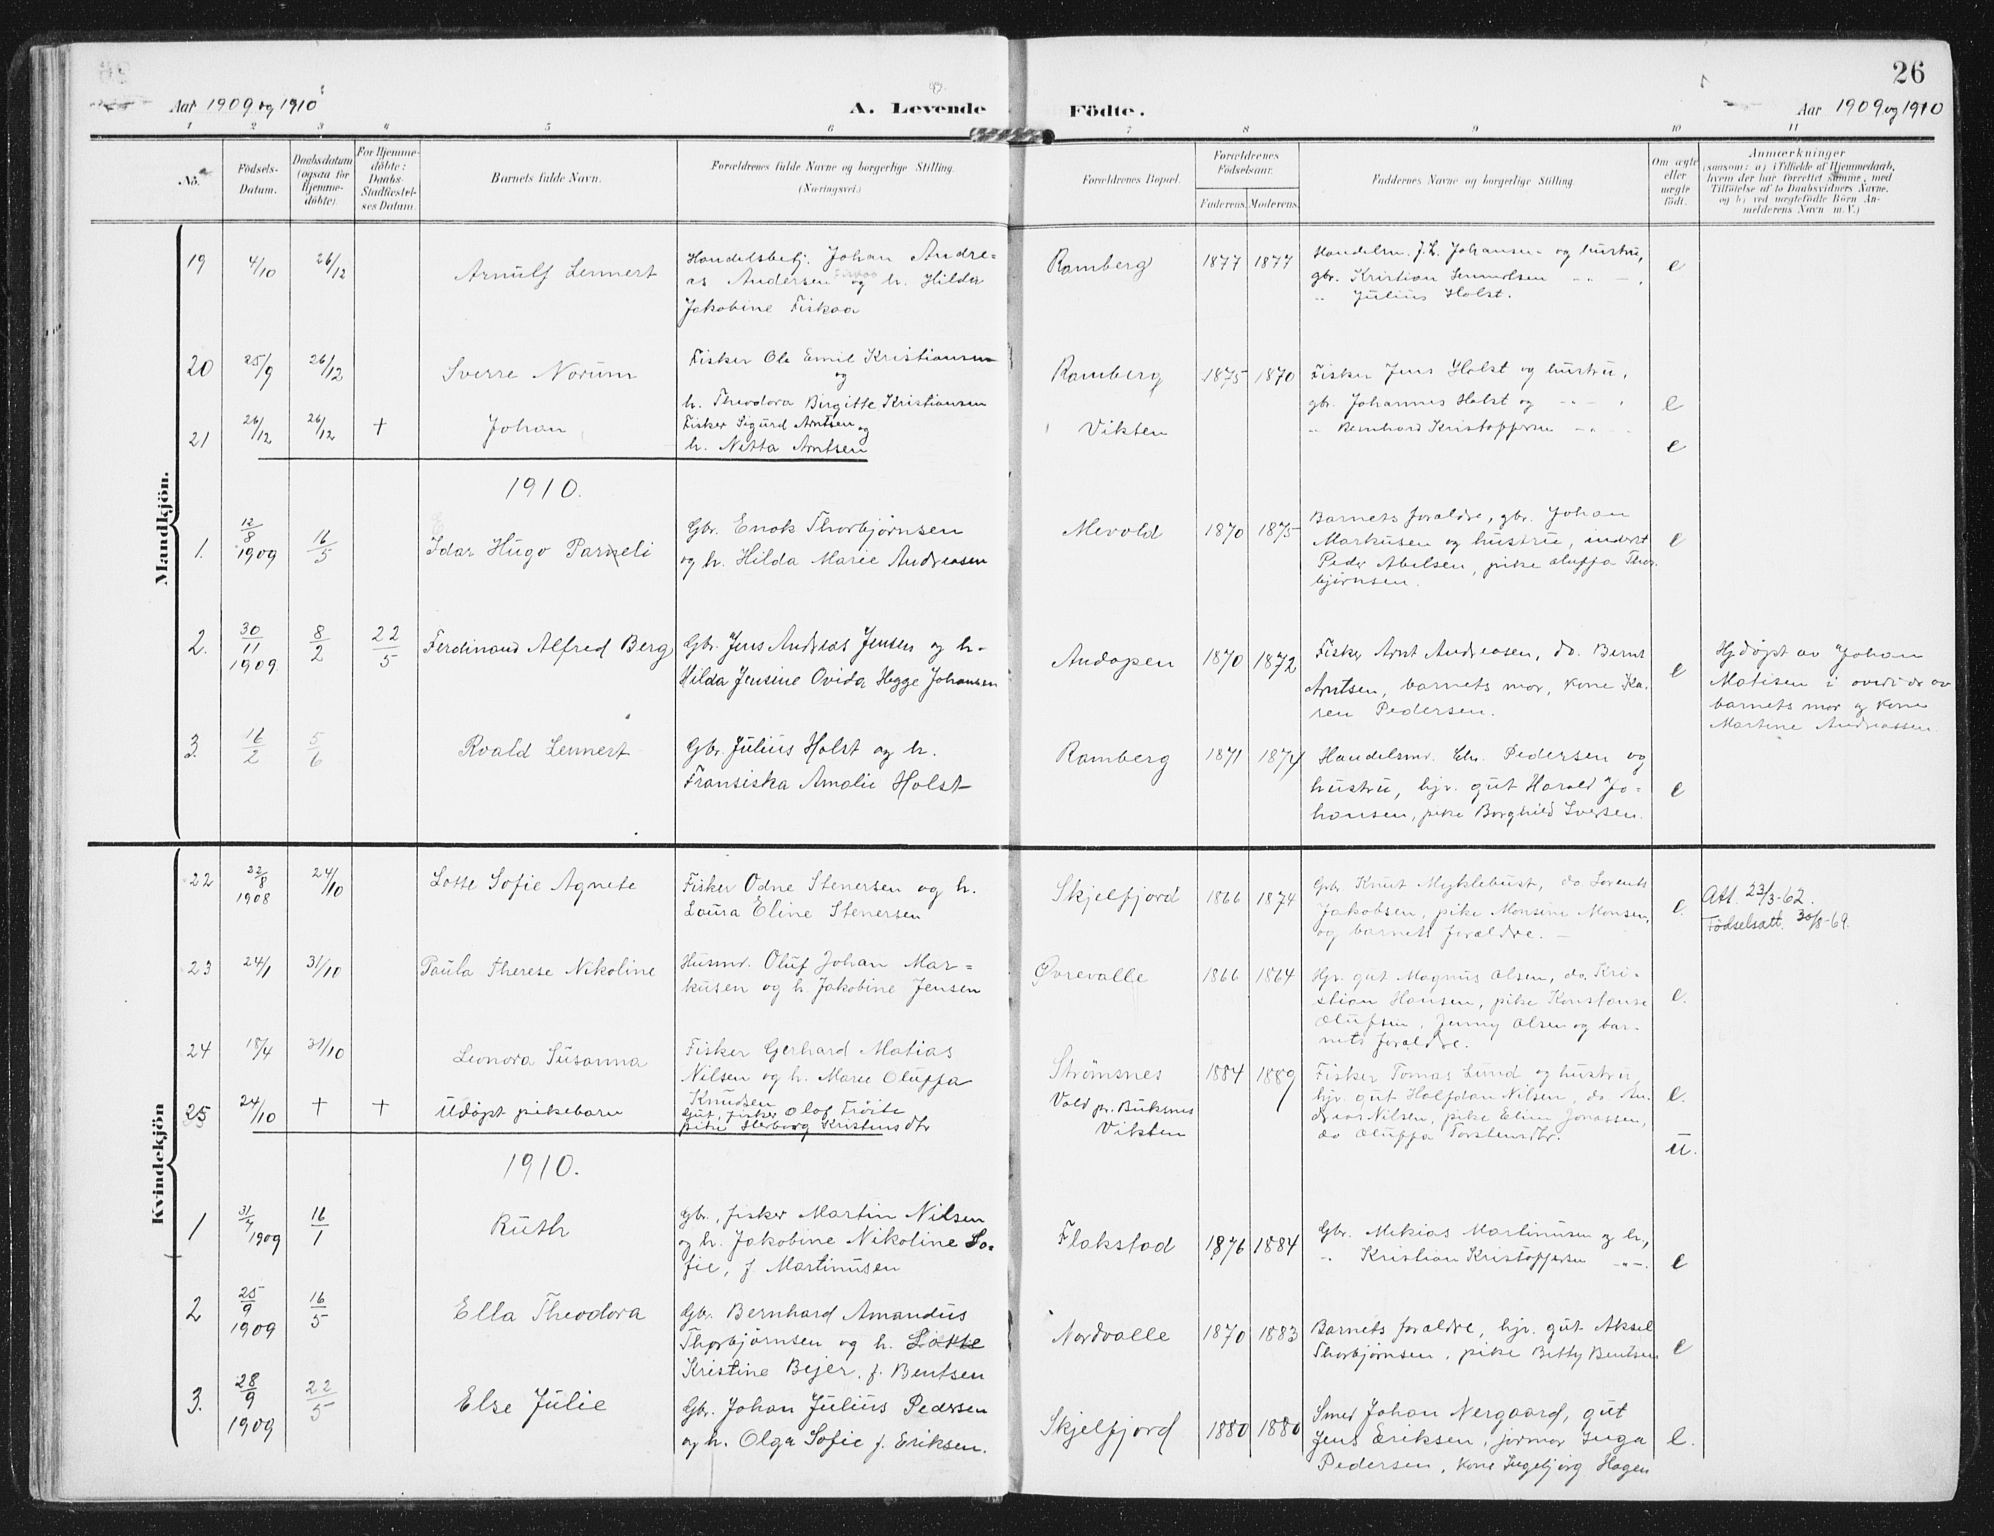 26
Aar 1909 og 1910
A. Levende Födte.
Aar 1909 og 1910
1 2 3 4 5 6 7 8 9 10 11
No.
Födsels-Datum.
Daabsdatum (ogsaa for Hjemme-döbte).
For Hjemme-döbte: Daabs-Stadfæstel-ses Datum.
Barnets fulde Navn.
Forældrenes fulde Navne og borgerlige Stilling. (Næringsvei.)
Forældrenes Bopæl.
Forældrenes Födselsaar.
Faderens. Moderens.
Faddernes Navne og borgerlige Stilling.
Om ægte eller uægte födt.
Anmærkninger
(saasom: a) i Tilfælde af Hjemmedaab,
hvem der har forrettet samme, med
Tilföielse af to Daabsvidners Navne.
og b) ved uægtefödte Börn An-
melderens Navn m. V.)
Mandkjön.
19 4/10 26/12 Arnulf Lennert
Handelsbetj. Johan Andre-
as Andersen og h. Hilda
Jakobine Fiskaa
Ramberg 1877 1877
Handelsm. J. L. Johansen og hustru,
gbr. Kristian Lennertsen " -
" Julius Holst.
e
20 25/9 26/12 Sverre Norum
Fisker Ole Emil Kristiansen
og
h. Theodora Birgitte Kristiansen
Ramberg 1875 1870
Fisker Jens Holst og hustru,
gbr. Johannes Holst og " - "
" Bernhard Kristoffersen - " -
e
21 26/12 26/12 + Johan
Fisker Sigurd Arntsen og
h. Netta Arntsen
Vikten
e
1910.
1. 12/8 1909 16/5 Idar Hugo Parneli
Gbr. Enok Thorbjørnsen
og h. Hilda Marie Andreasen
Mevold 1870 1875
Barnets forældre, gbr. Johan
Markusen og hustru, inderst
Peder Abelsen, pike Oluffa Thor-
bjørnsen.
e
2. 30/11 1909 8/2 22/5 Ferdinand Alfred Berg
Gbr. Jens Andreas Jensen og h.
Hilda Jensine Ovida Hegge Johansen
Andopen 1870 1872
Fisker Arnt Andreasen, do. Bernt
Arntsen, barnets mor, kone Ka-
ren Pedersen.
e
Hjdøpt av Johan
Matisen i overvær av
barnets mor og kone
Martine Andreassen.
3. 16/2 5/6 Roald Lennert
Gbr. Julius Holst og h.
Fransiska Amalie Holst
Ramberg 1871 1874
Handelsmd. Chr. Pedersen og
hustru, hjv. gut Harald Jo-
hansen, pike Borghild Iversen.
e
Kvindekjön
22 22/8 1908 24/10 Lotte Sofie Agnete
Fisker Odne Stenersen og h.
Laura Eline Stenersen
Skjelfjord 1866 1874
Gbr. Knut Myklebust, do. Lorents
Jakobsen, pike Monsine Monsen,
og barnets forældre. -
e.
Att. 23/3-62.
Födselsatt. 30/8-69.
23 24/1 31/10 Paula Therese Nikoline
Husmd. Oluf Johan Mar-
kusen og h. Jakobine Jensen
Øvrevalle 1866 1864
Hjv. gut Magnus Olsen, do. Kri-
stian Hansen, pike Konstanse
Olufsen, Jenny Olsen og bar-
nets forældre.
e.
24 18/4 31/10 Leonora Susanna
Fisker Gerhard Matias
Nilsen og h. Marie Oluffa
Knudsen
Strømsnes 1884 1889
Fisker Tomas Lund og hustru,
hjv. gut Halfdan Nilsen, do. An-
dreas Nilsen, pike Eline Jonassen,
do Oluffa Torstensdtr.
e.
25 24/10 + + Udøpt pikebarn
Gut, fisker Olaf Tröite
pike Herborg Kristensdtr
Vold pr. Buksnes
Vikten
u.
1910.
1 31/7 1909 16/1 Ruth
Gbr., fisker Martin Nilsen
og h. Jakobine Nikoline So-
fie, f. Martinusen
Flakstad 1876 1884
Gbr. Mekias Martinusen og h.,
" Kristian Kristoffersen - " -
e
2 25/9 1909 16/5 Ella Theodora
Gbr. Bernhard Amandus
Thorbjørnsen og h. Lotte
Kristine Bejer, f. Bentsen
Nordvalle 1870 1883
Barnets forældre, hjv. gut Aksel
Thorbjørnsen, pike Betty Bentsen
e
3. 28/9 1909 22/5 Else Julie
Gbr. Johan Julius Pedersen
og h. Olga Sofie f. Eriksen.
Skjelfjord 1880 1880
Smed Johan Nergaard, gut
Jens Eriksen, jormor Inga
Pedersen, kone Ingebjørg Hagen
e.